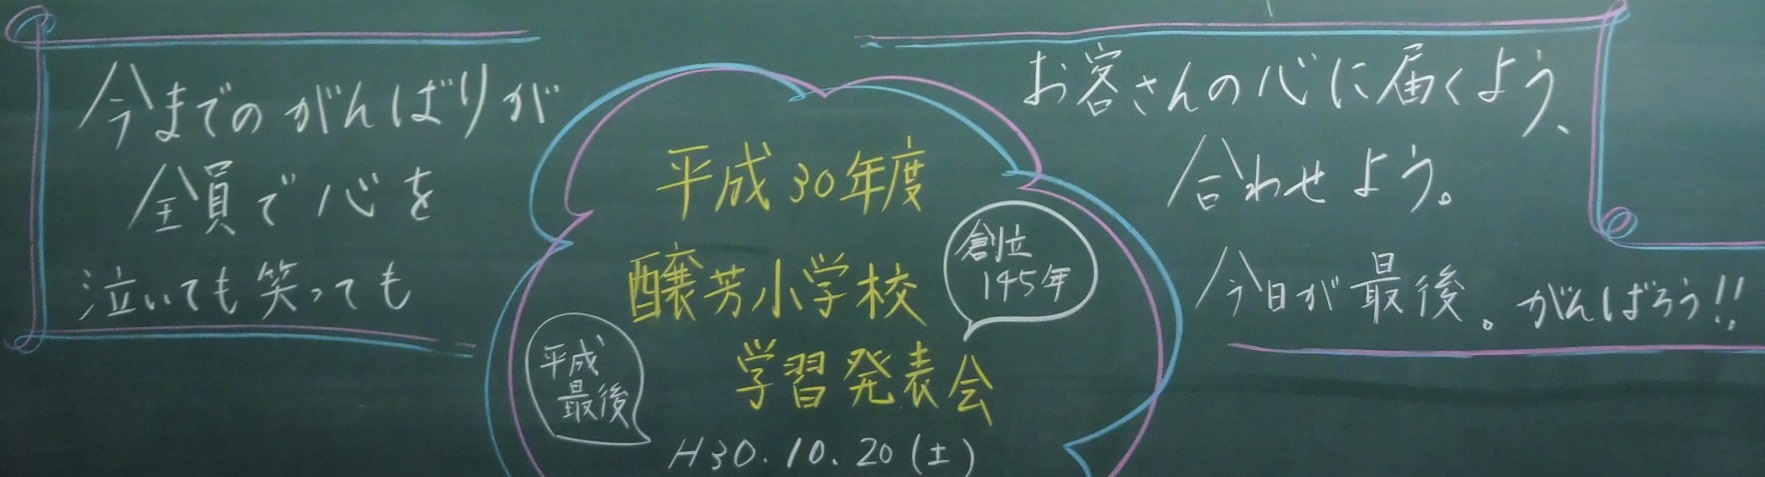 今までのがんばりが
お客さんの心に届くよう、
全員で心を
合わせよう。
泣いても笑っても
今日が最後。がんばろう!!
平成30年度
醸芳小学校
学習発表会
創立
145年
平成
最後
H30.10.20(土)